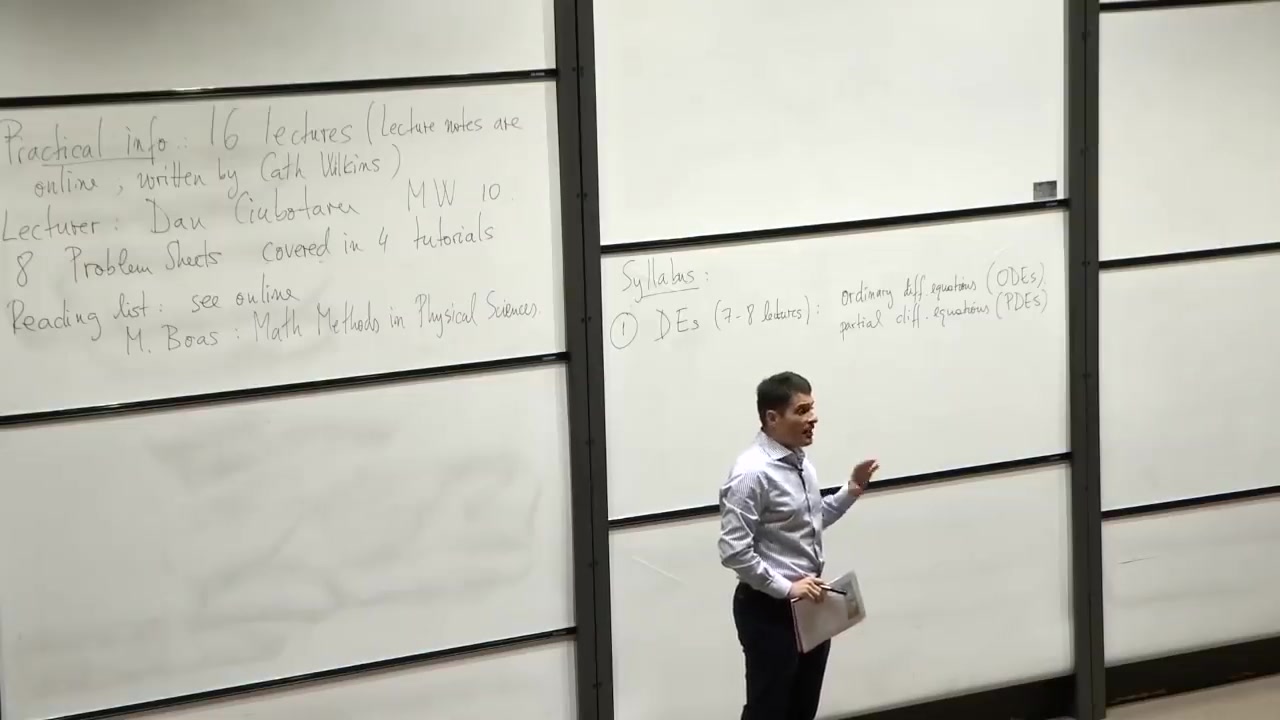 Practical info : 16 lectures (lecture notes are
online, written by Cath Wilkins)
Lecturer : Dan Ciubotaru MW 10
8 Problem Sheets covered in 4 tutorials
Reading list : see online
M. Boas : Math Methods in Physical Sciences.
Syllabus :
① DEs (7-8 lectures) : ordinary diff. equations (ODEs)
partial diff. equations (PDEs)